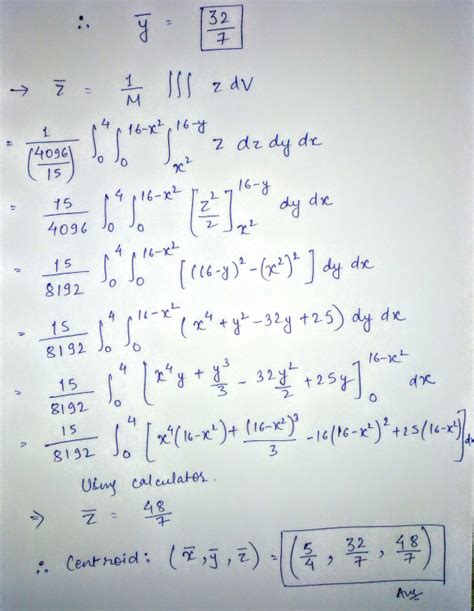 ∴ ȳ = 32/7
→ z̄ = 1/M ∭ z dV
= 1/(4096/15) ∫₀⁴ ∫₀^(16-x²) ∫_(x²)^(16-y) z dz dy dx
= 15/4096 ∫₀⁴ ∫₀^(16-x²) [z²/2]_(x²)^(16-y) dy dx
= 15/8192 ∫₀⁴ ∫₀^(16-x²) [(16-y)² - (x²)²] dy dx
= 15/8192 ∫₀⁴ ∫₀^(16-x²) (x⁴ + y² - 32y + 25) dy dx
= 15/8192 ∫₀⁴ [x⁴y + y³/3 - 32y²/2 + 25y]₀^(16-x²) dx
= 15/8192 ∫₀⁴ [x⁴(16-x²) + (16-x²)³/3 - 16(16-x²)² + 25(16-x²)] dx
Using calculator.
⇒ z̄ = 48/7
∴ Centroid: (x̄, ȳ, z̄) = (5/4, 32/7, 48/7)
Ans